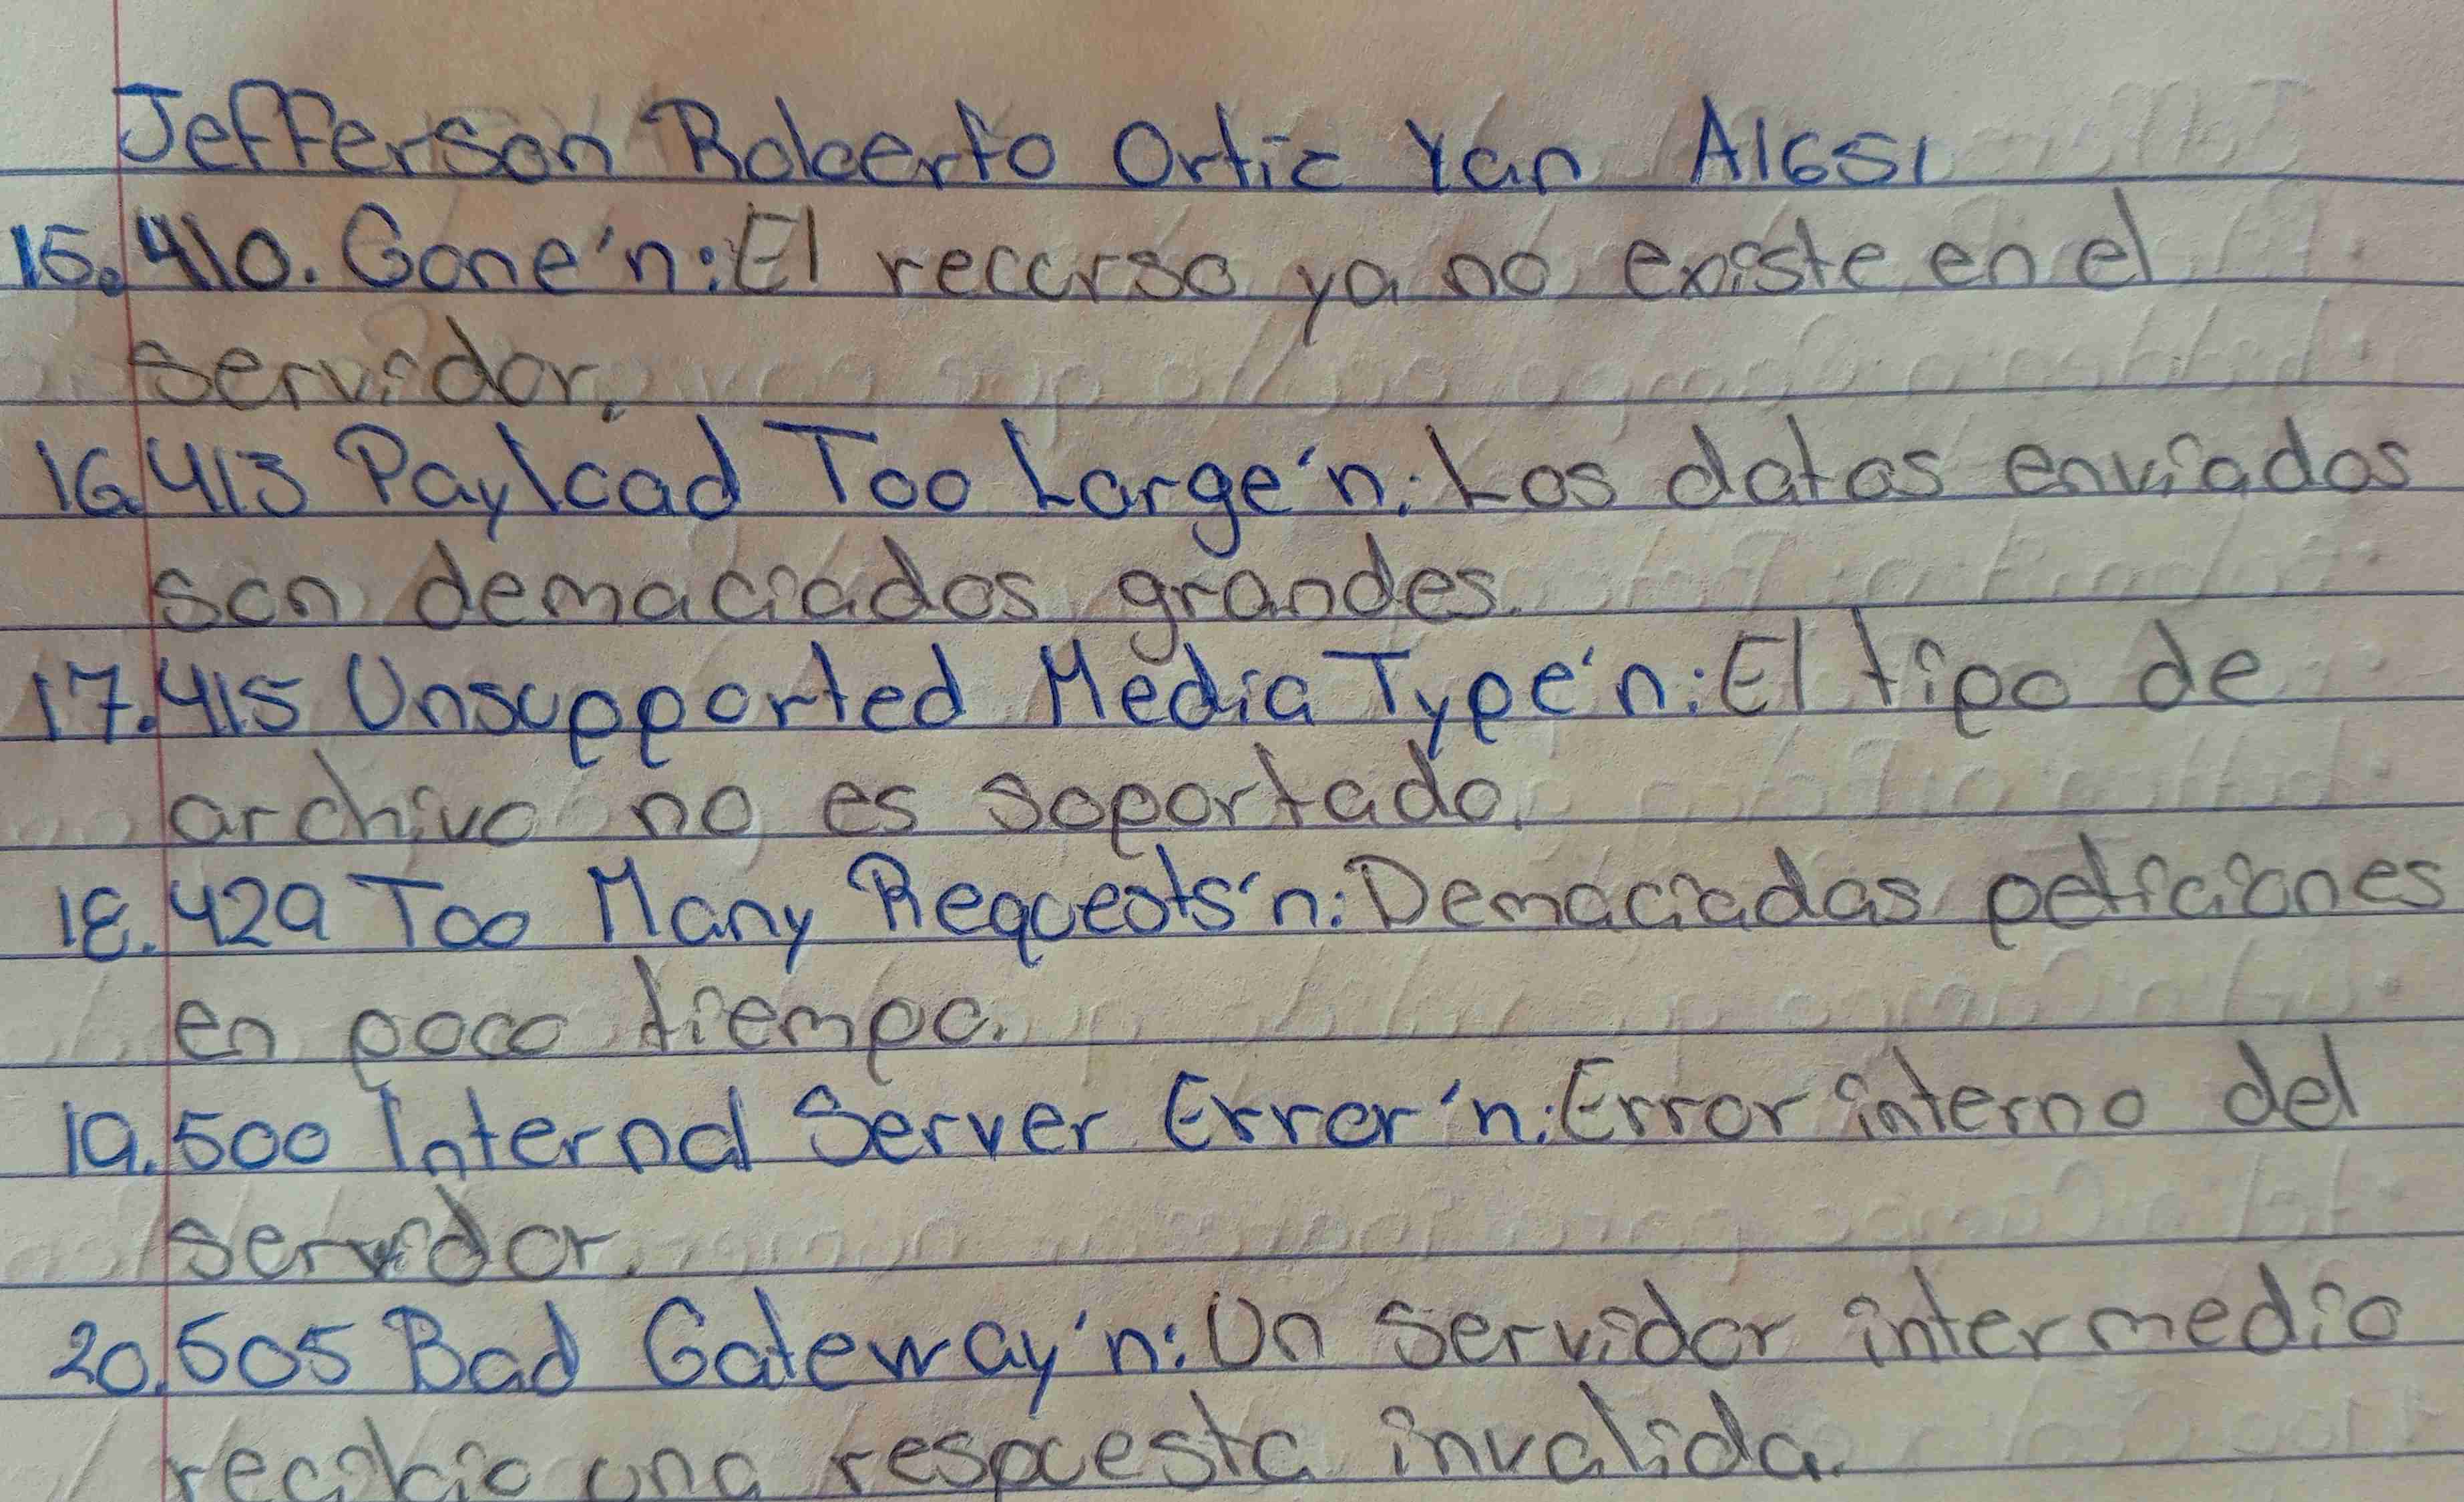 Jefferson Roberto Ortiz Yan A1651
15. 410. Gone'n: El recurso ya no existe en el
servidor.
16. 413 Payload Too Large'n: Los datos enviados
son demaciados grandes.
17. 415 Unsupported Media Type'n: El tipo de
archivo no es soportado.
18. 429 Too Many Requests'n: Demaciadas peticiones
en poco tiempo.
19. 500 Internal Server Error'n: Error interno del
servidor.
20. 505 Bad Gateway'n: Un servidor intermedio
recibio una respuesta invalida.